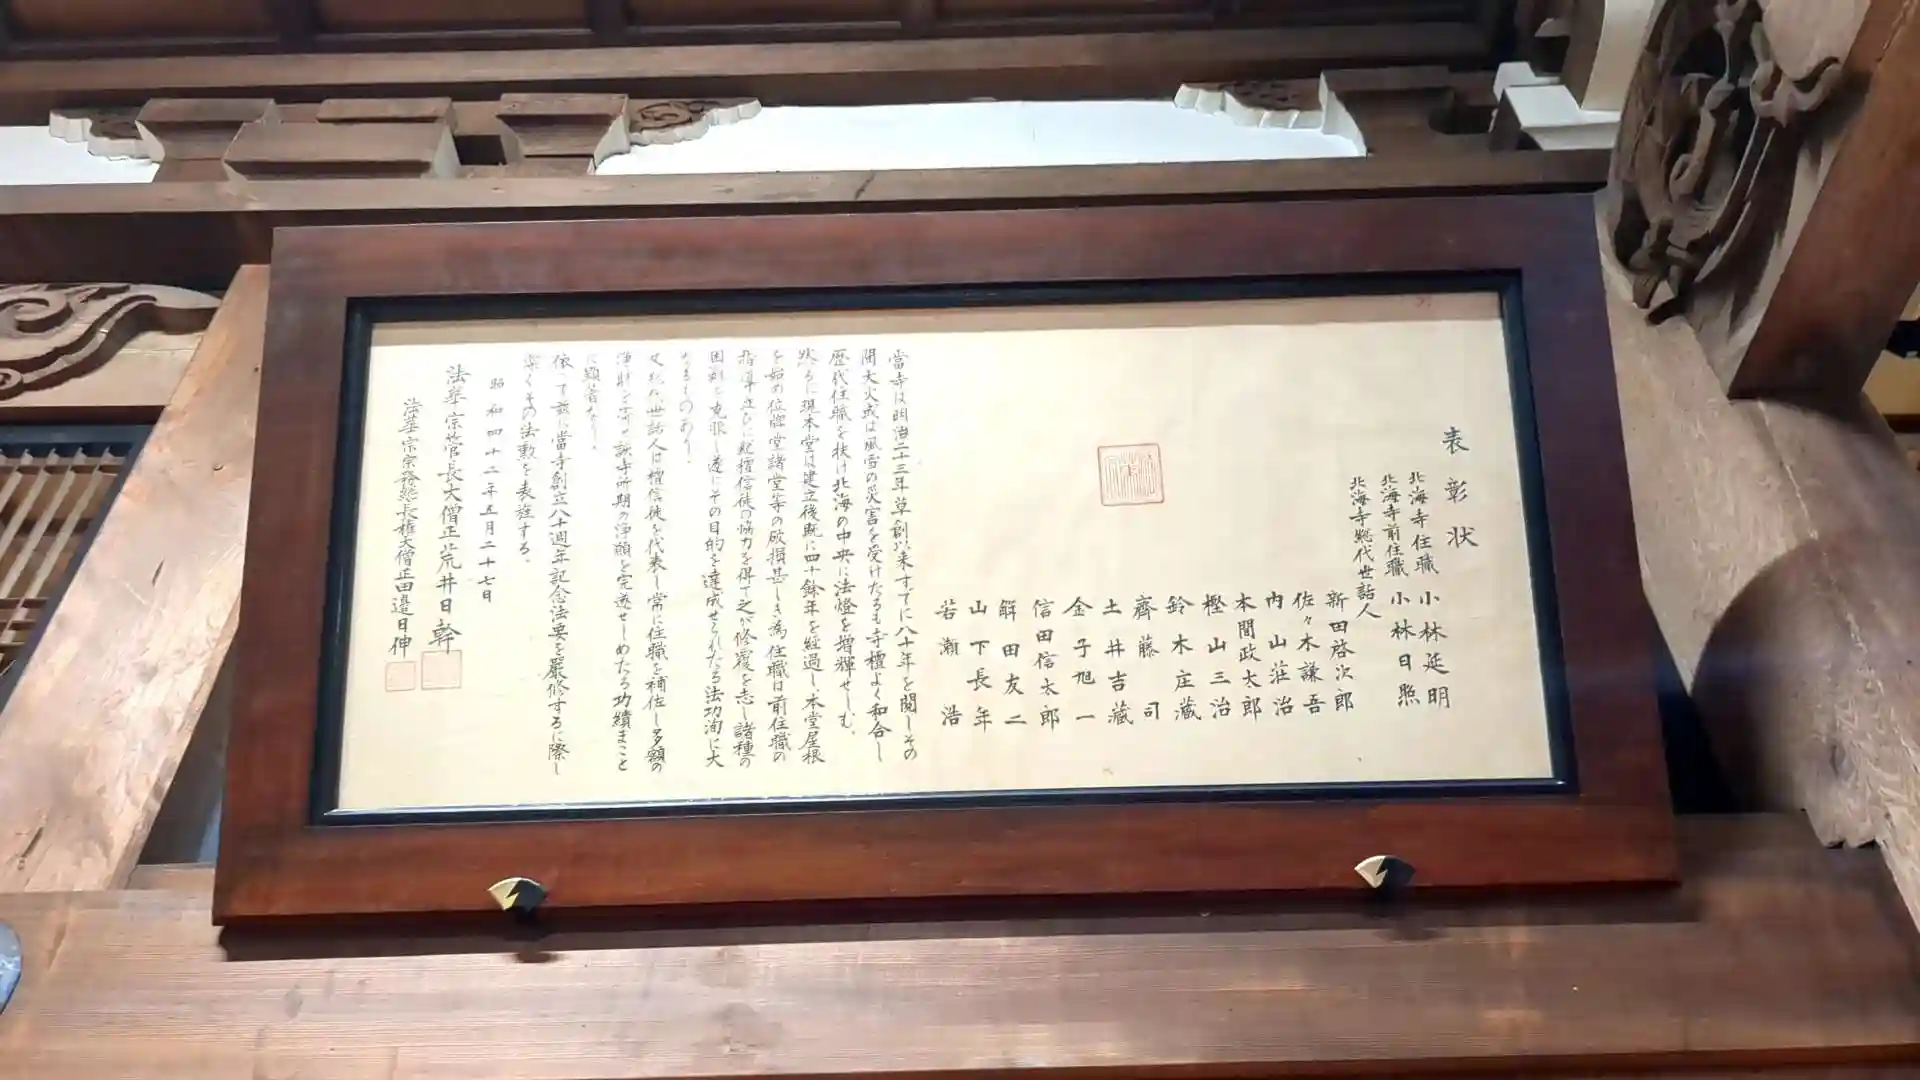 表彰状
北海寺住職 小林延明
北海寺前住職 小林日照
北海寺総代世話人
新田啓次郎
佐々木謙吾
内山荘治
本間政太郎
樫山三治
鈴木庄蔵
齊藤司
土井吉蔵
金子旭一
信田信太郎
解田友二
山下長年
若瀬浩
當寺は明治二十三年草創以来すでに八十年を閲しその
間大火或は風雪の災害を受けたるも寺檀よく和合し
歴代住職を扶け北海の中央に法燈を増輝せしむ。
然るに現本堂は建立後既に四十餘年を経過し、本堂屋根
を始め位牌堂諸堂等の破損甚しき為住職は前住職の
指導並らに総檀信徒の協力を得て之が修覆を志し諸種の
困難を克服し遂にその目的を達成せられたる法功洵に大
なるものあり。
又総代世話人は檀信徒を代表し常に住職を補佐し多額の
浄財を寄せ該寺所期の浄願を完遂せしめたる功績まこと
に顕著なり。
依って茲に當寺創立八十週年記念法要を厳修するに際し
深くその法勲を表旌する。
昭和四十二年五月二十七日
法華宗管長大僧正荒井日幹
法華宗宗務総長権大僧正田邉日伸